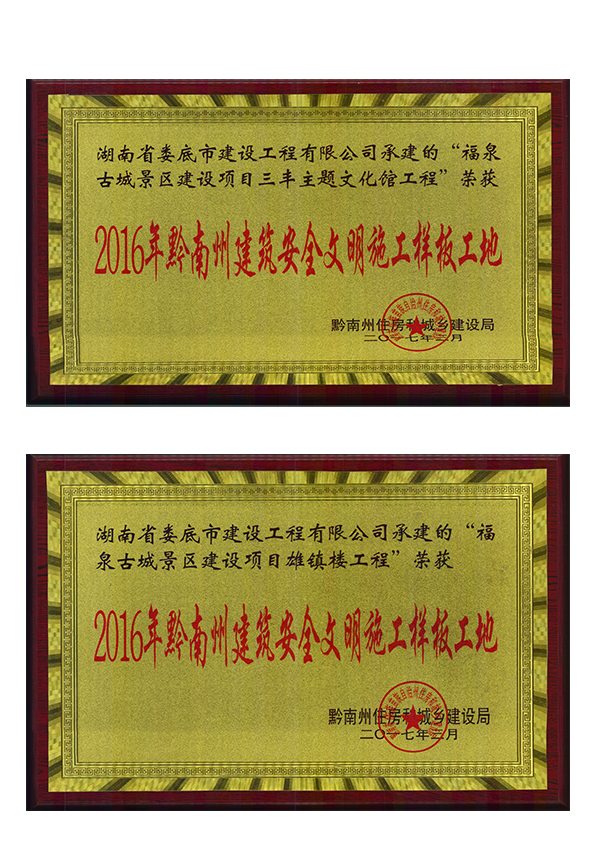 湖南省娄底市建设工程有限公司承建的“福泉
古城景区建设项目三丰主题文化馆工程”荣获
2016年黔南州建筑安全文明施工样板工地
黔南州住房和城乡建设局
二〇一七年二月
湖南省娄底市建设工程有限公司承建的“福
泉古城景区建设项目雄镇楼工程”荣获
2016年黔南州建筑安全文明施工样板工地
黔南州住房和城乡建设局
二〇一七年二月